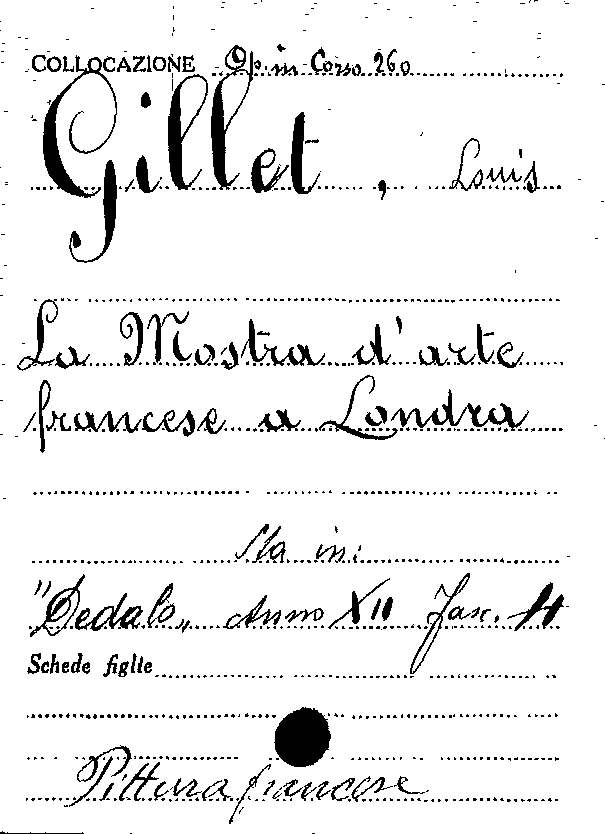 COLLOCAZIONE Op. in Corso 260
Gillet, Louis
La Mostra d'arte
francese a Londra
Sta in:
"Dedalo„ Anno XII Fasc. 4
Schede figlie
Pittura francese